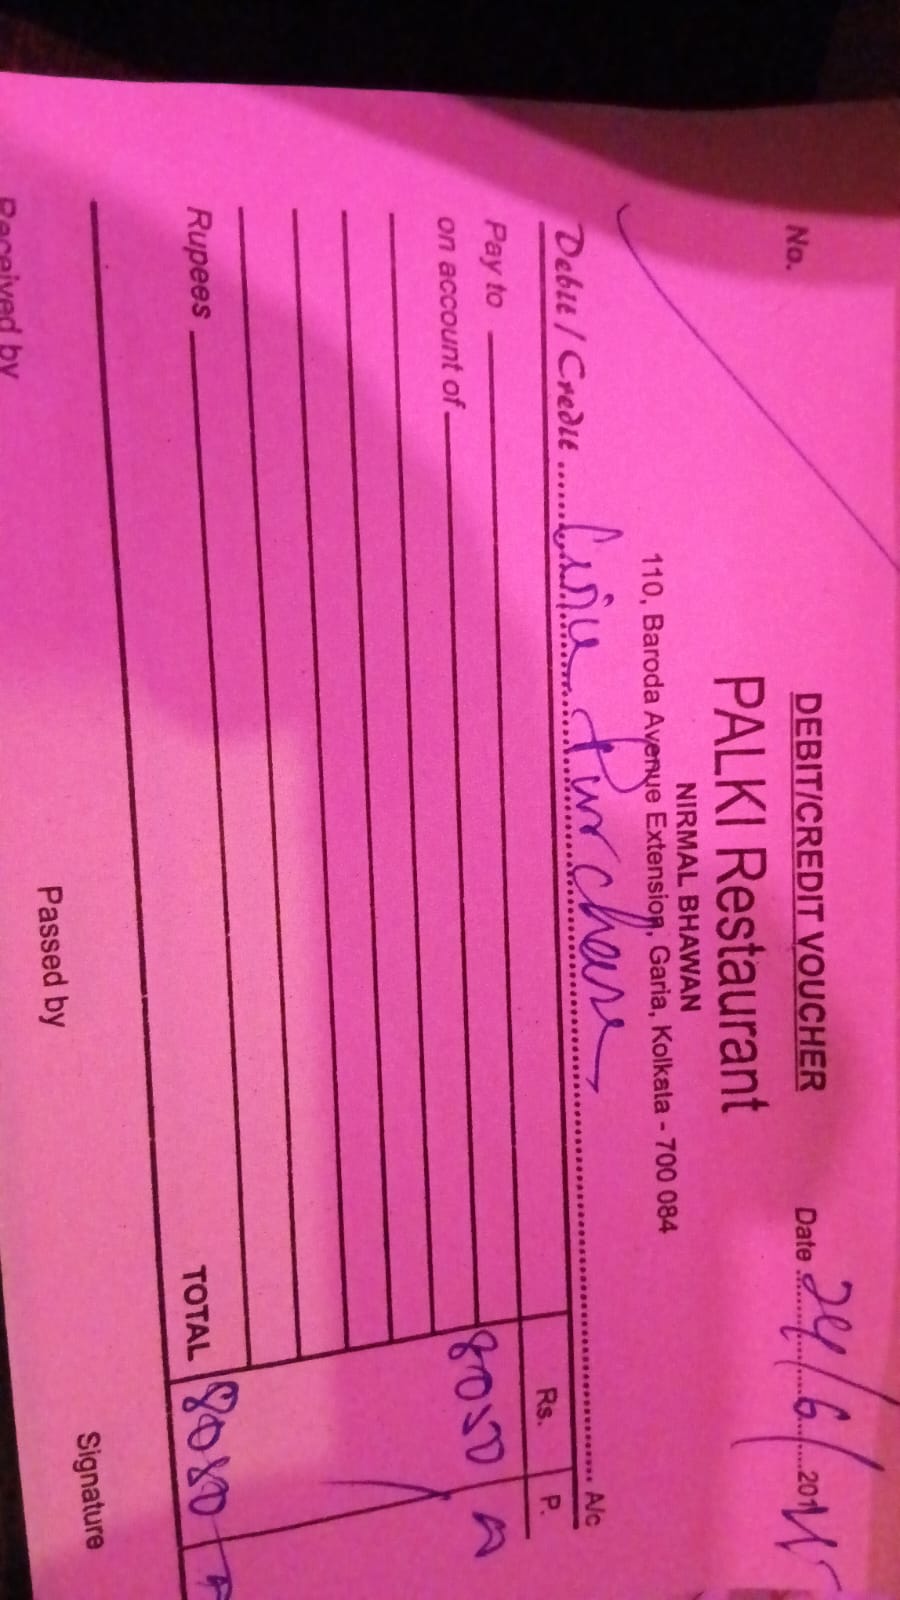 DEBIT/CREDIT VOUCHER
No.
Date 24/6/201
PALKI Restaurant
NIRMAL BHAWAN
110, Baroda Avenue Extension, Garia, Kolkata - 700 084
Debit / Credit Purchase A/c
Rs. P.
Pay to
on account of
Rupees TOTAL
Received by Passed by Signature